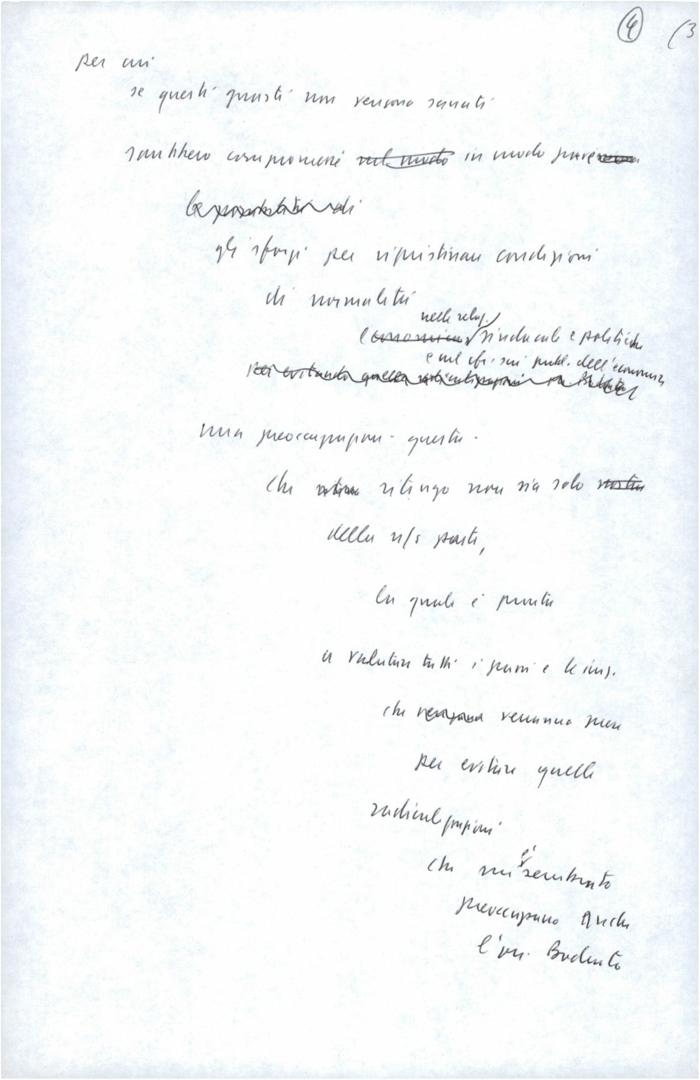 4 (3
per cui
se questi guasti non vengono sanati
sarebbero compromessi nel modo in modo grave
le possibilità di
gli sforzi per ripristinare condizioni
di normalità
nelle relaz.
economiche sindacali e politiche
e nel
dell'economia
per evitando quelle
una preoccupazione questa
che ritengo non sia solo nostra
della n/s parte,
la quale è pronta
a valutare tutti i passi e le iniz.
che vengono verranno prese
per evitare quelle
radicalizzazioni
che mi è sembrato
preoccupano anche
l'on. Bodrato